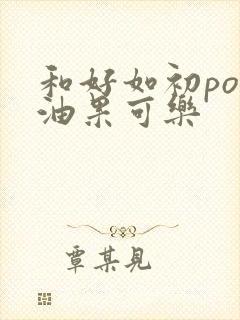 和好如初po
油果可樂
覃某見